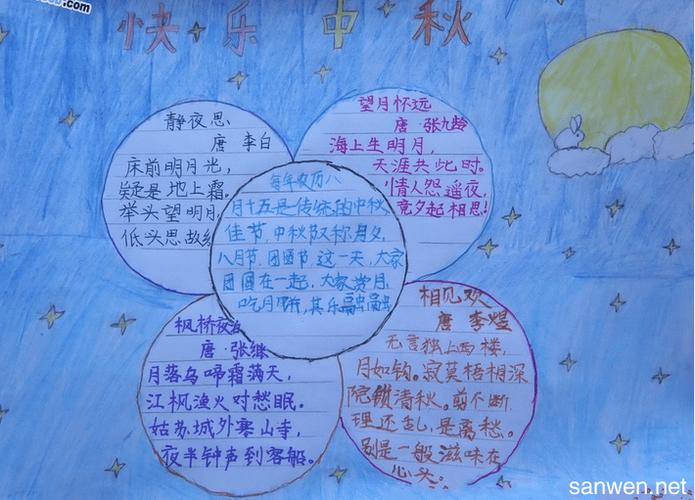 快乐中秋
静夜思
唐 李白
床前明月光，
疑是地上霜。
举头望明月，
低头思故
望月怀远
唐·张九龄
海上生明月，
天涯共此时。
情人怨遥夜，
竞夕起相思！
每年农历八
月十五是传统的中秋
佳节，中秋双称月夕，
八月节，团圆节，这一天，大家
团圆在一起，大家赏月，
吃月饼，其乐融融
枫桥夜泊
唐·张继
月落乌啼霜满天，
江枫渔火对愁眠。
姑苏城外寒山寺，
夜半钟声到客船。
相见欢
唐 李煜
无言独上西楼，
月如钩。寂寞梧桐深
院锁清秋。剪不断，
理还乱，是离愁。
别是一般滋味在
心头。
sanwen.net